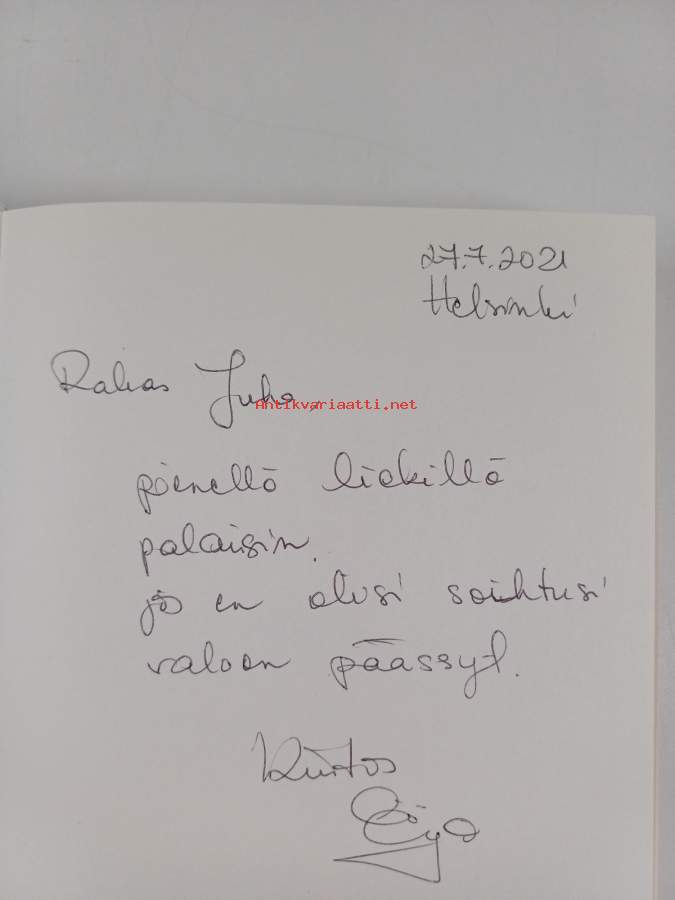 27.7.2021
Helsinki
Rakas Juha,
Antikvariaatti.net
pienellä liekillä
palaisin,
jos en olisi soihtusi
valoon päässyt.
Kiitos